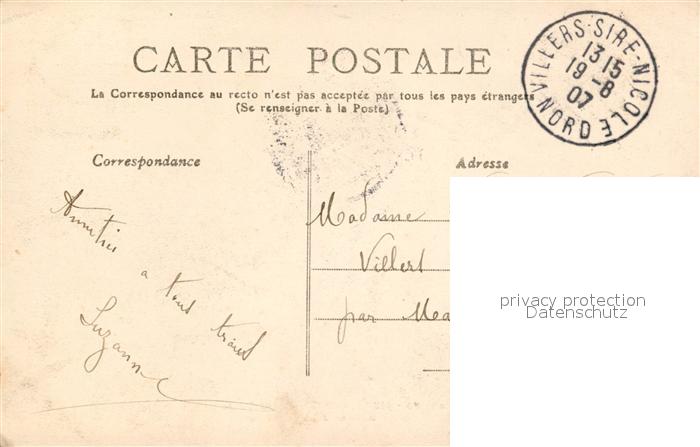 CARTE POSTALE
La Correspondance au recto n'est pas acceptée par tous les pays étrangers
(Se renseigner à la Poste)
VILLERS-SIRE-NICOLE
13 15
19 -8
07
NORD
Correspondance
Adresse
Amitiés
a tous trois
Suzanne
Madame
Villert
par Ma
privacy protection
Datenschutz